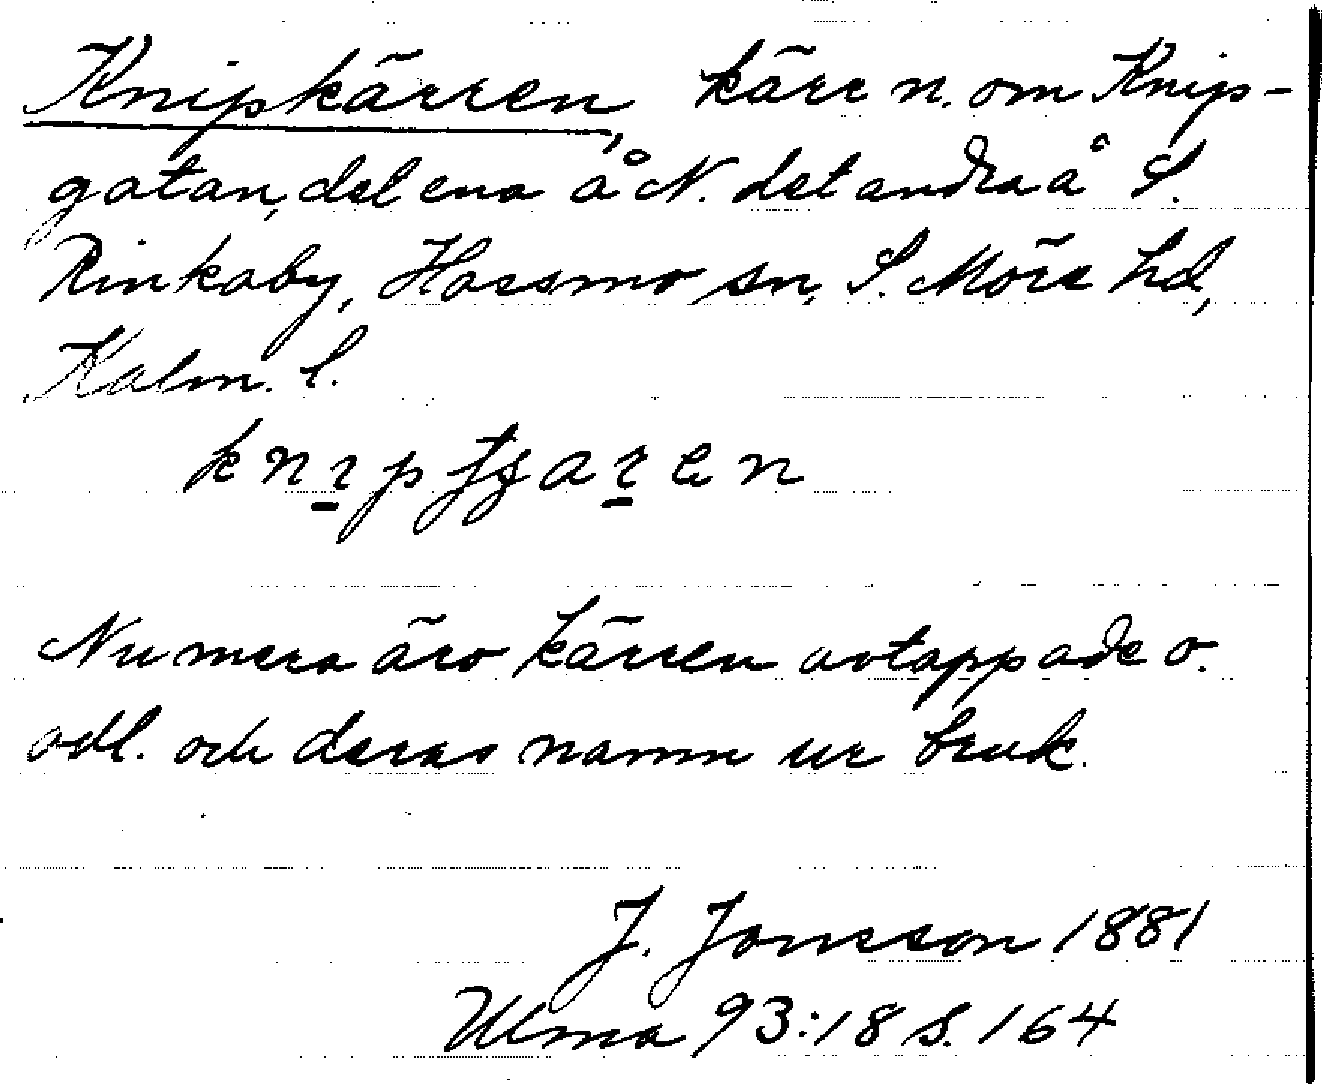 Knipkärren, kärr n. om Knip-
gatan, det ena å N. det andra å S.
Rinkaby, Hossmo sn, S. Möre hd,
Kalm. l.
Numera äro kärren avtappade o.
odl. och deras namn ur bruk.
J. Jonsson 1881
Ulma 93:18 s. 164